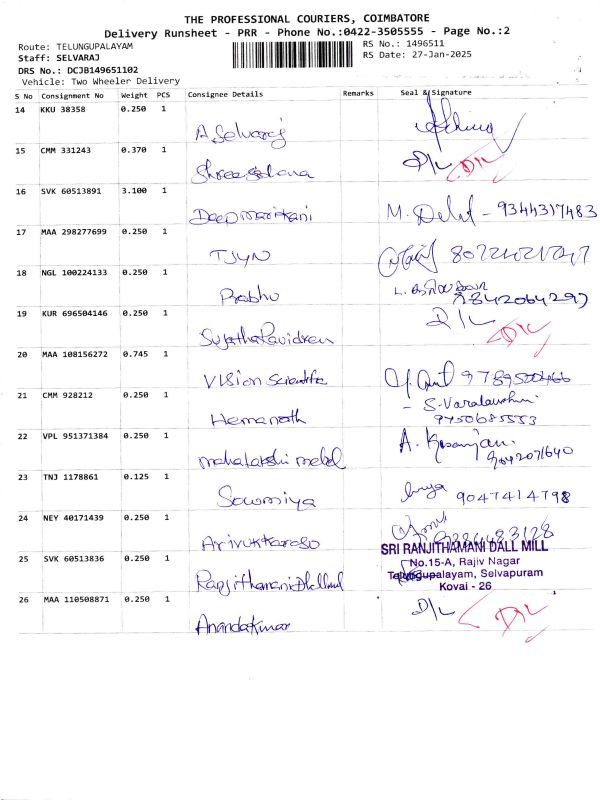 THE PROFESSIONAL COURIERS, COIMBATORE
Delivery Runsheet - PRR - Phone No.:0422-3505555 - Page No.:2
Route: TELUNGUPALAYAM
RS No.: 1496511
Staff: SELVARAJ
RS Date: 27-Jan-2025
DRS No.: DCJB149651102
Vehicle: Two Wheeler Delivery
S No Consignment No Weight PCS Consignee Details Remarks Seal & Signature
14 KKU 38358 0.250 1
A.Selvaraj
15 CMM 331243 0.370 1 D/L D/L
16 SVK 60513891 3.100 1
Deepmanikani M. - 9344317483
17 MAA 298277699 0.250 1
TJYN
18 NGL 100224133 0.250 1
Prabhu 9842064297
19 KUR 696504146 0.250 1 D/L D/L
20 MAA 108156272 0.745 1
Vision Scientific 9789500466
21 CMM 928212 0.250 1 S.Varalakshmi
Hemanath 9750685553
22 VPL 951371384 0.250 1 A.
9042071640
23 TNJ 1178861 0.125 1
Sowmiya 9047414798
24 NEY 40171439 0.250 1
Arivukkarasu
SRI RANJITHAMANI DALL MILL
25 SVK 60513836 0.250 1 No.15-A, Rajiv Nagar
Telungupalayam, Selvapuram
Kovai - 26
26 MAA 110508871 0.250 1 D/L D/L
Anandakumar